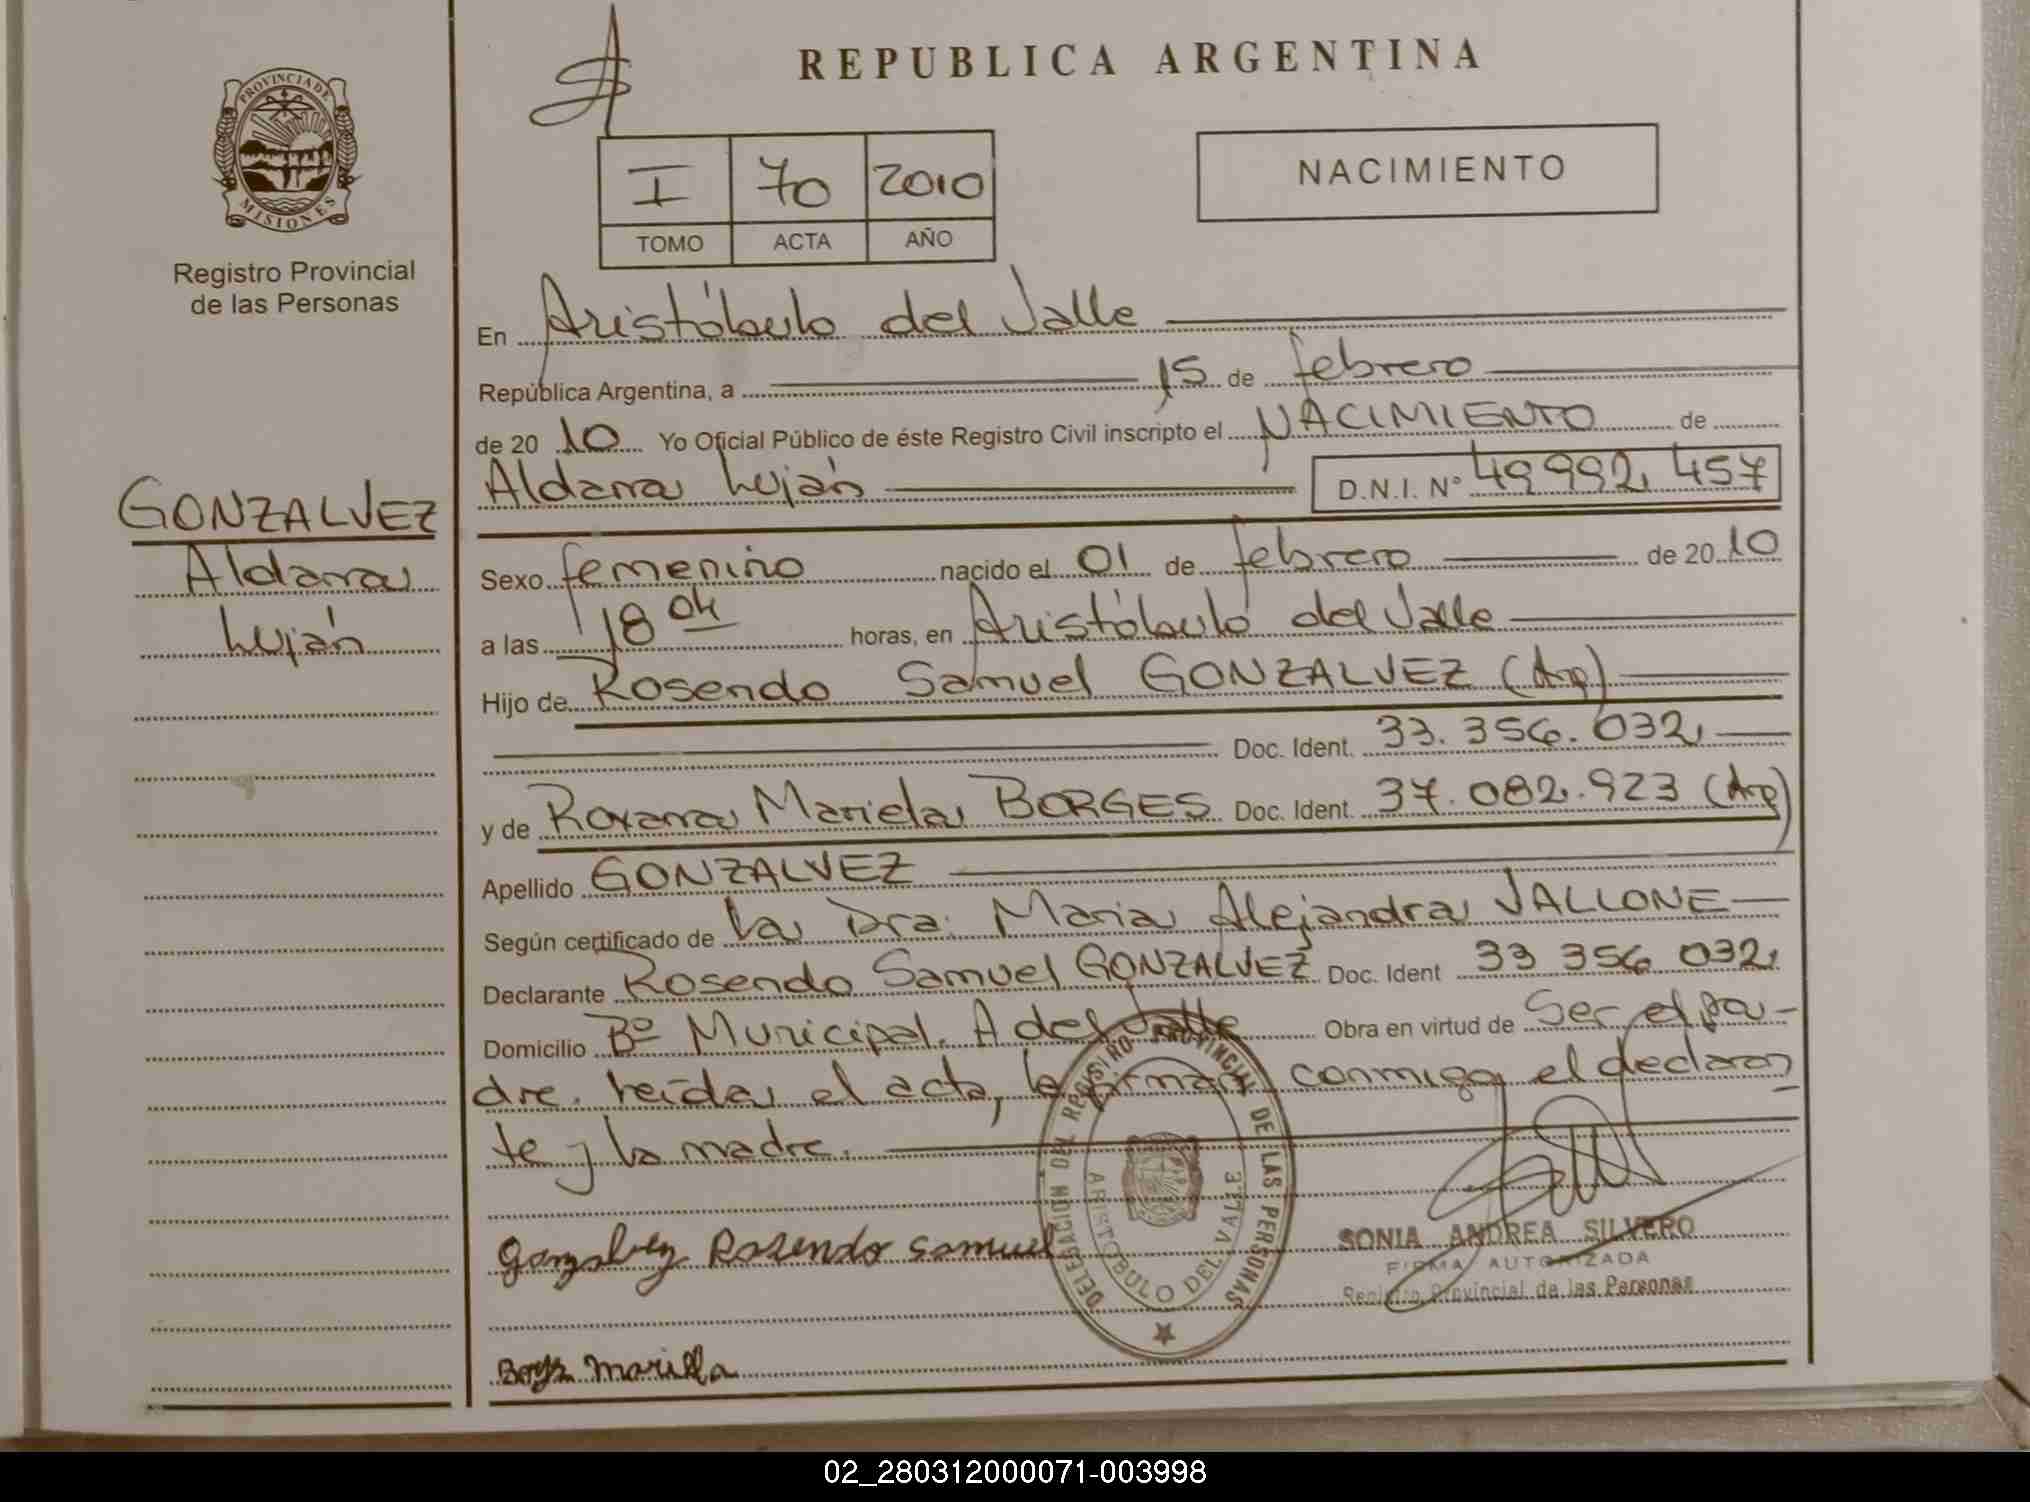 REPUBLICA ARGENTINA
PROVINCIA DE
MISIONES
Registro Provincial
de las Personas
I 70 2010
TOMO ACTA AÑO
NACIMIENTO
En Aristóbulo del Valle
República Argentina, a 15 de febrero
de 20 10 Yo Oficial Público de éste Registro Civil inscripto el NACIMIENTO de
Aldana Luján D.N.I. N° 49.992.457
GONZALVEZ
Aldana
Luján
Sexo femenino nacido el 01 de febrero de 20 10
a las 18 04 horas, en Aristóbulo del Valle
Hijo de Rosendo Samuel GONZALVEZ (Arg)
Doc. Ident. 33.356.032
y de Roxana Mariela BORGES Doc. Ident. 37.082.923 (Arg)
Apellido GONZALVEZ
Según certificado de La Dra. Maria Alejandra VALLONE
Declarante Rosendo Samuel GONZALVEZ Doc. Ident 33 356 032
Domicilio Bº Municipal. A del Valle Obra en virtud de Ser el pa-
dre. Leída el acta, la firman conmigo el declaran
te y la madre.
DELEGACION DEL REGISTRO PROVINCIAL DE LAS PERSONAS
ARISTOBULO DEL VALLE
Gonzalvez Rosendo Samuel
SONIA ANDREA SILVERO
FIRMA AUTORIZADA
Registro Provincial de las Personas
02_280312000071-003998